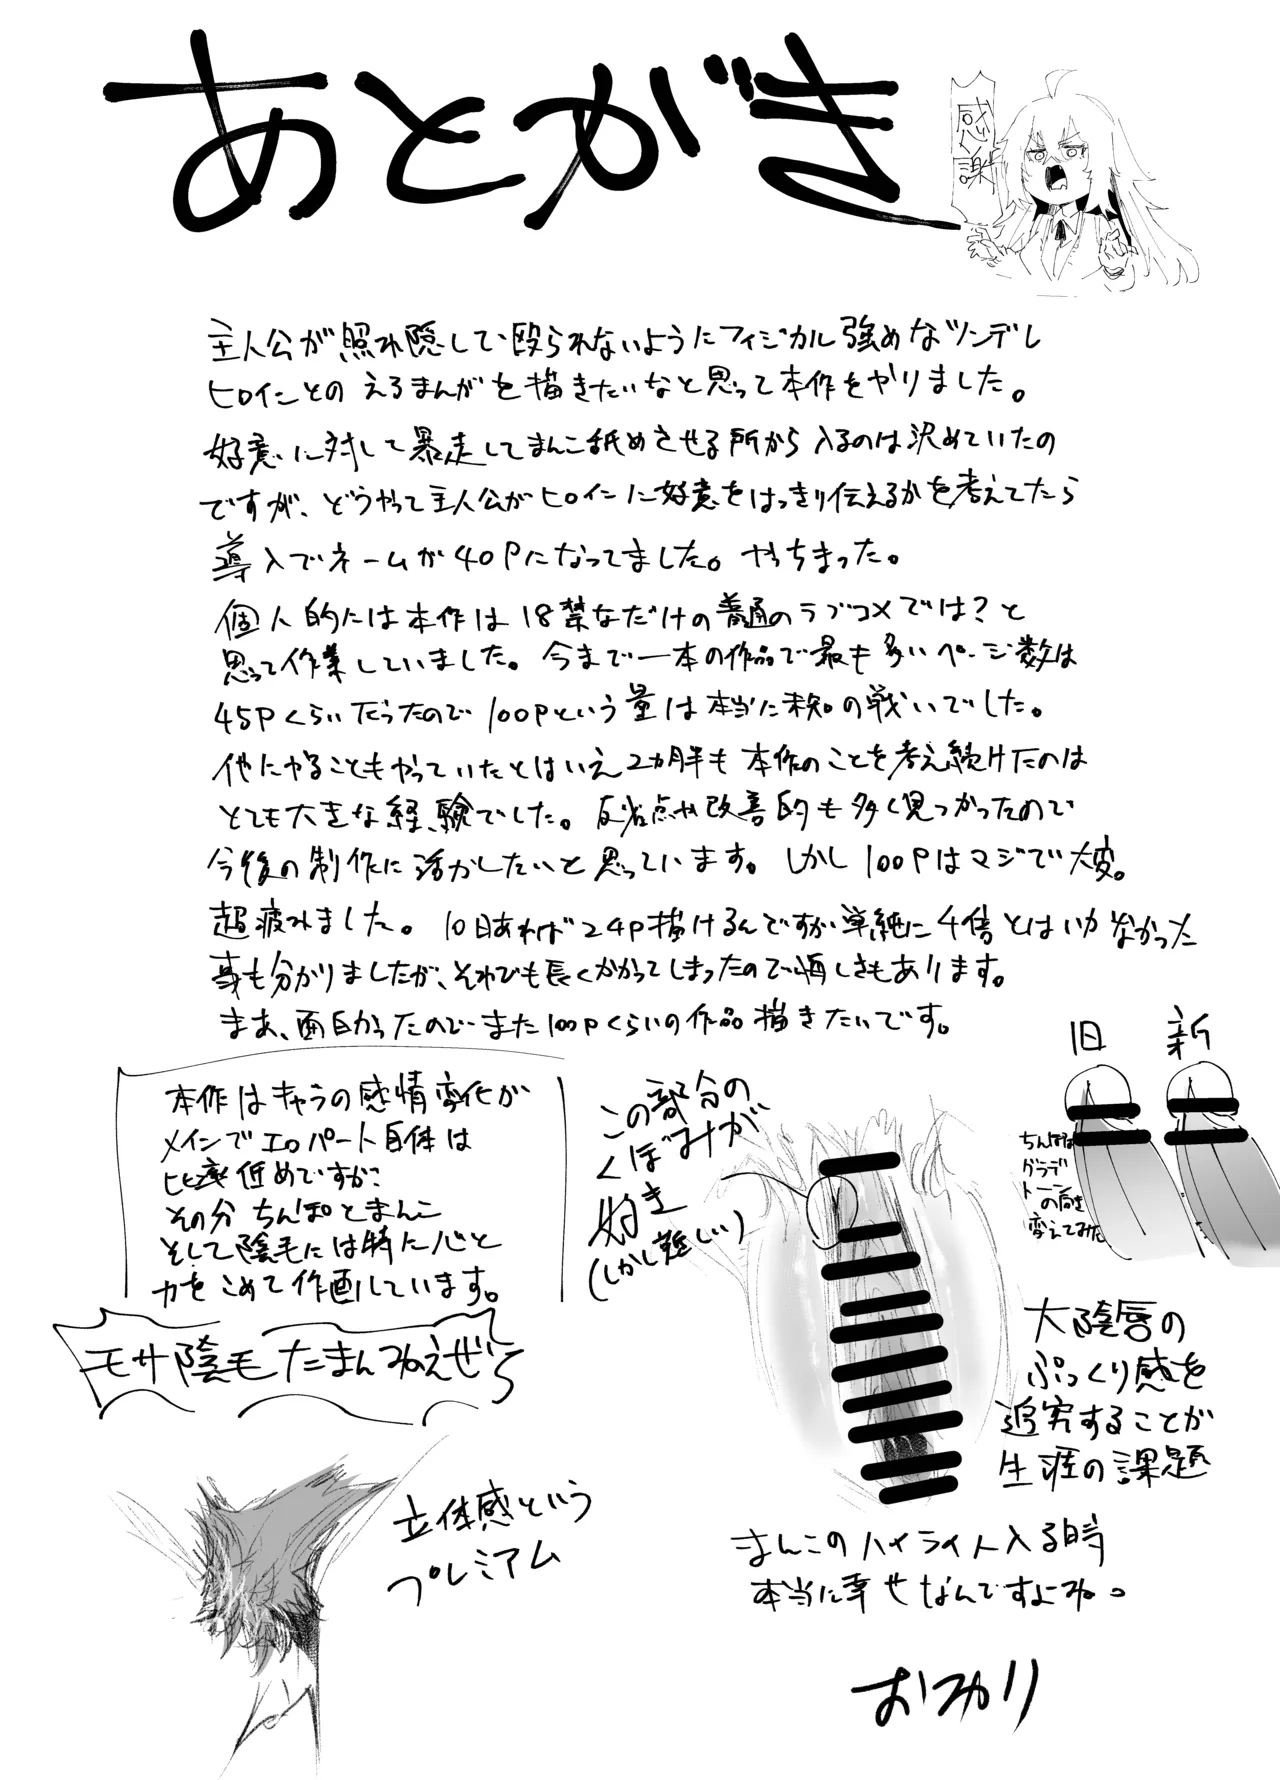 あとがき
感謝
主人公が照れ隠しで殴られないようにフィジカル強めなツンデレ
ヒロインとのえろまんがを描きたいなと思って本作をやりました。
好意に対して暴走してまんこ舐めさせる所から入るのは決めていたの
ですが、どうやって主人公がヒロインに好意をはっきり伝えるかを考えてたら
導入でネームが40Pになってました。やっちまった。
個人的には本作は18禁なだけの普通のラブコメでは?と
思って作業していました。今まで一本の作品で最も多いページ数は
45Pくらいだったので100Pという量は本当に未知の戦いでした。
他にやることもやっていたとはいえ2カ月半も本作のことを考え続けたのは
とても大きな経験でした。反省点や改善的も多く見つかったので
今後の制作に活かしたいと思っています。しかし100Pはマジで大変。
超疲れました。10日あれば24P描けるんですが単純に4倍とはいかなかった
事も分かりましたが、それでも長くかかってしまったので悔しさもあります。
まあ、面白かったのでまた100Pくらいの作品描きたいです。
本作はキャラの感情変化が
メインでエロパート自体は
比率低めですが、
その分ちんぽとまんこ
そして陰毛には特に心と
力をこめて作画しています。
モサ陰毛たまんねえぜ
立体感という
プレミアム
この部分の
くぼみが
好き
(しかし難しい)
旧 新
ちんぽは
グラデ
トーン
の向き
変えてみた
大陰唇の
ぷっくり感を
追究することが
生涯の課題
まんこのハイライト入る時
本当に幸せなんですよね。
おつかり